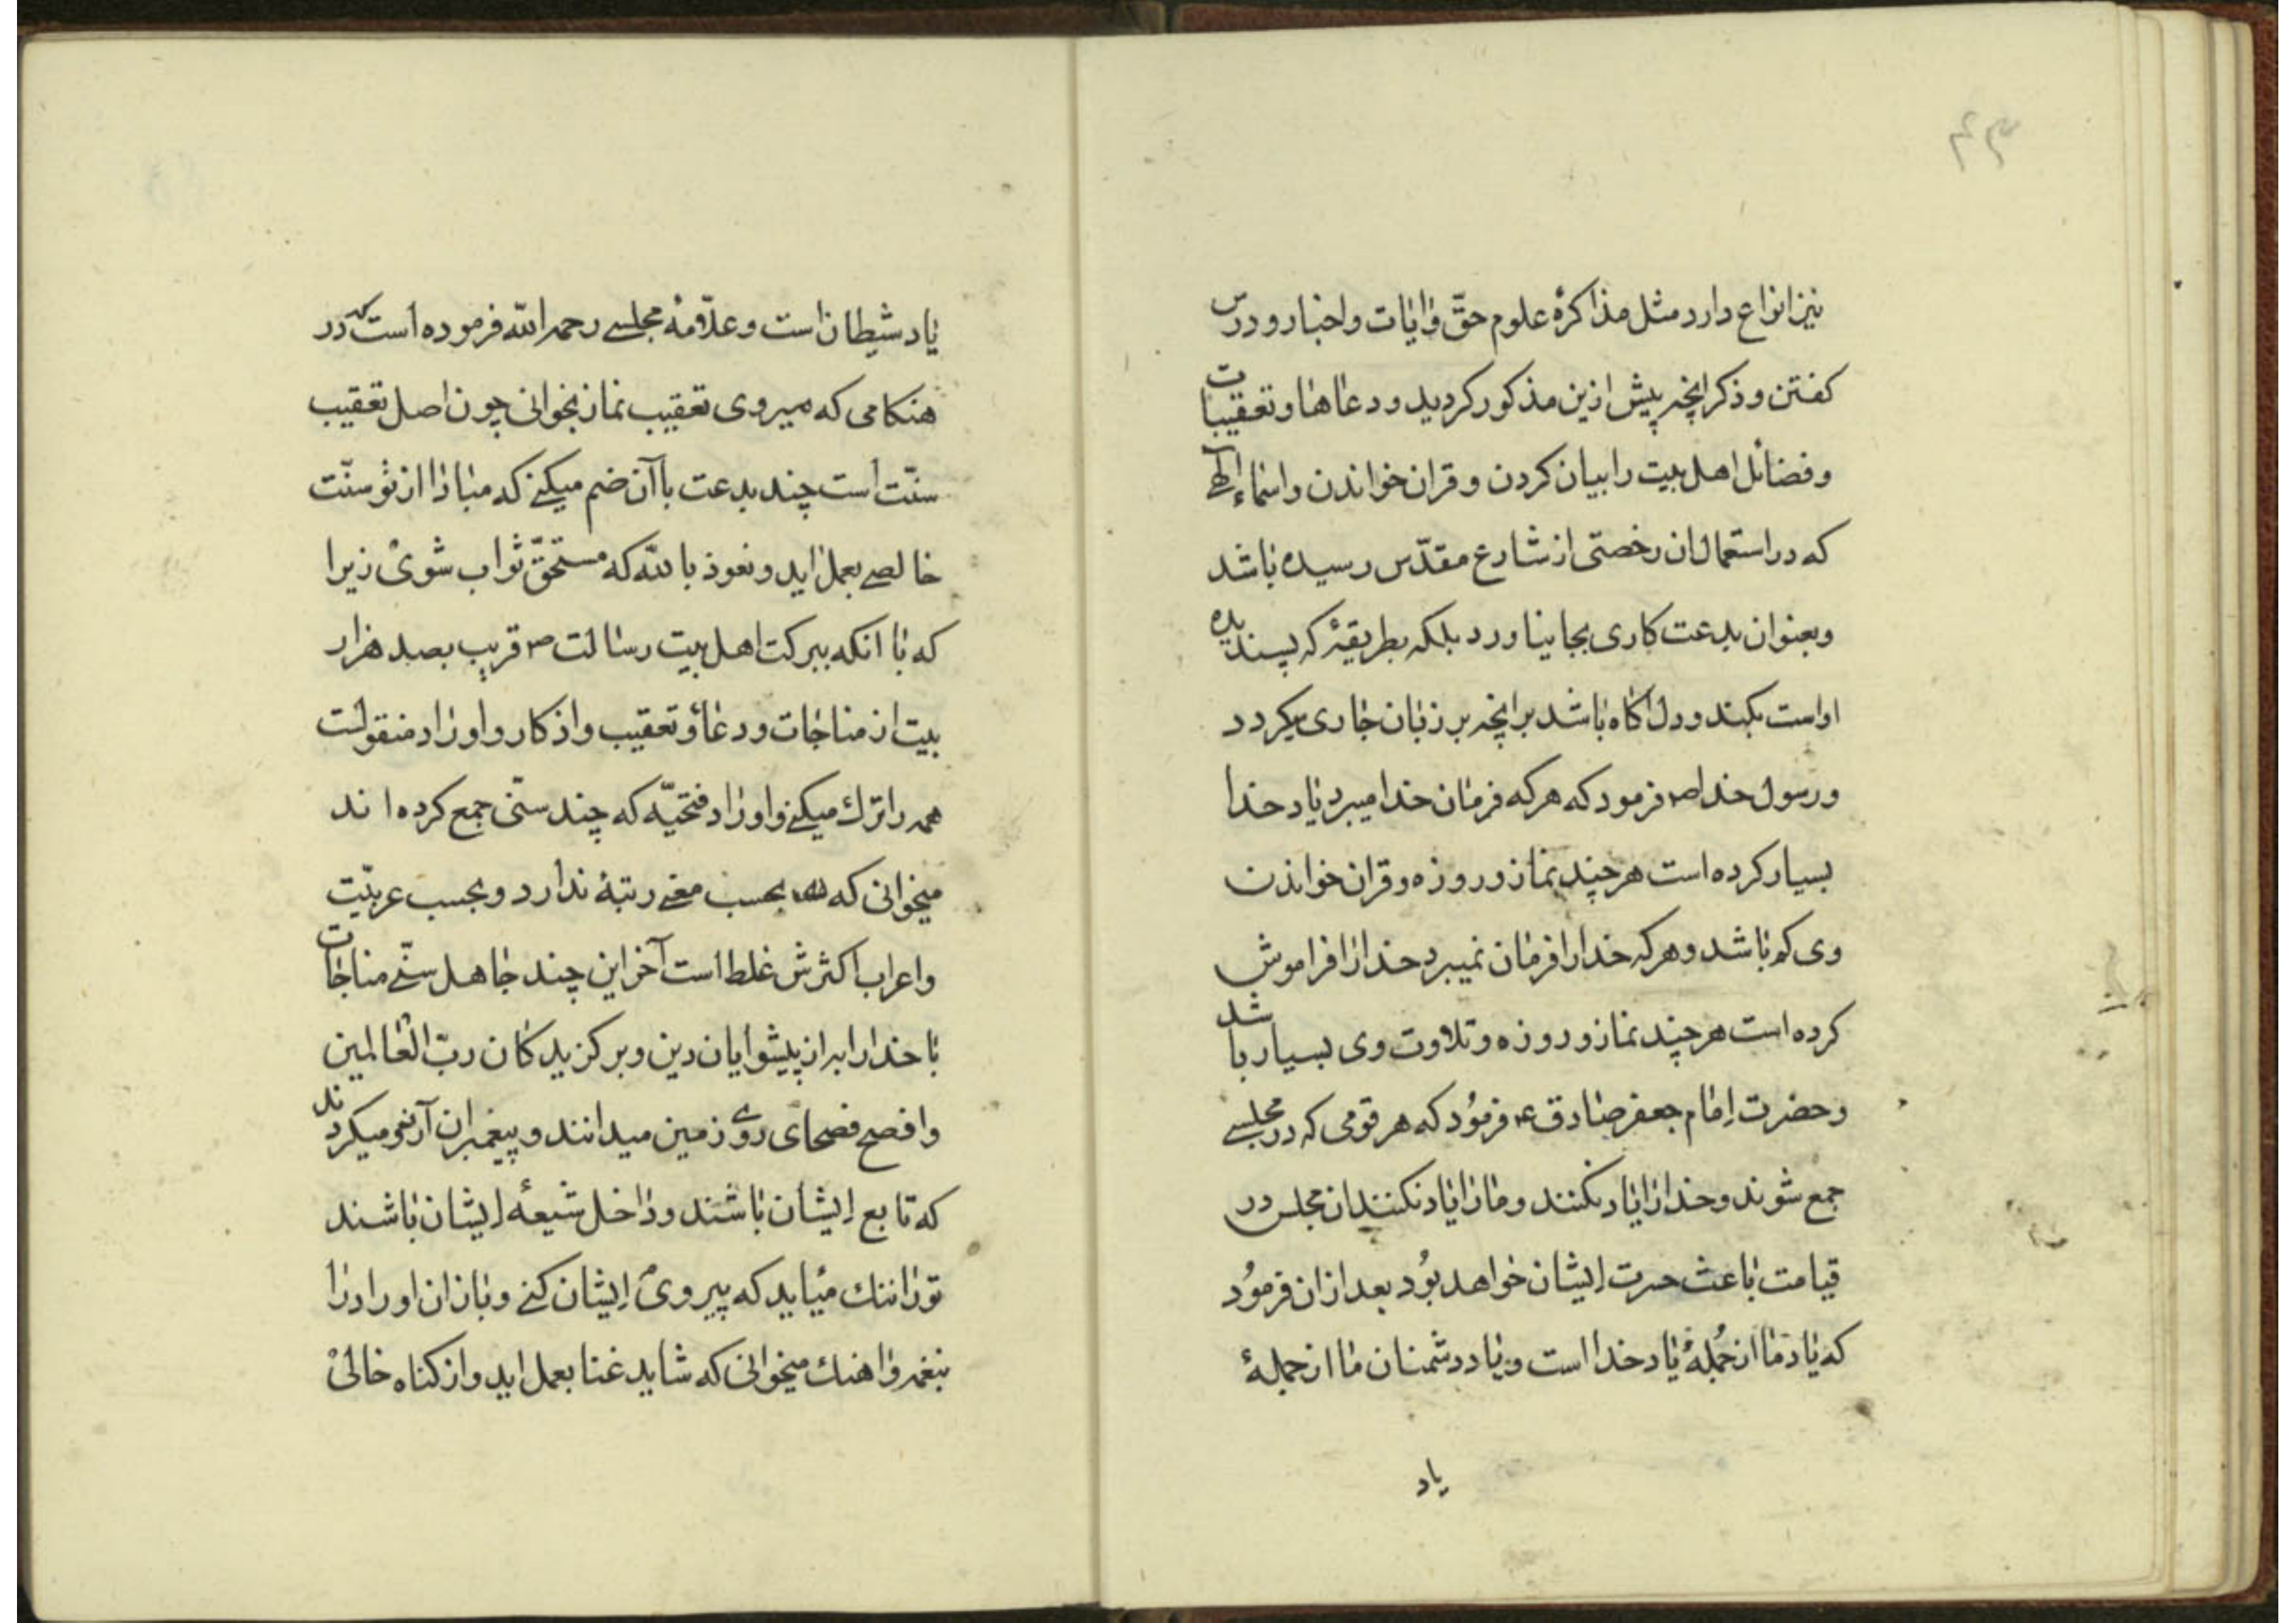 ۴۴
نیز انواع دارد مثل مذاکرهٔ علوم حقّ و ایات و اخبار و درس
کفتن و ذکر انچه پیش ازین مذکور کردید و دعاها و تعقیبات
و فضائل اهل بیت را بیان کردن و قران خواندن و اسماء الٓهی
که در استعمال ان رخصتی از شارع مقدّس رسیده باشد
و بعنوان بدعت کاری بجا نیاورد بلکه بطریقهٔ که پسندیده
او است بکند و دل اکاه باشد بر انچه بر زبان جاری میکردد
و رسول خدا ص فرمود که هر که فرمان خدا میبرد یاد خدا
بسیار کرده است هر چند نماز و روزه و قران خواندن
وی کم باشد و هر که خدا را فرمان نمیبرد خدا را فراموش
کرده است هر چند نماز و روزه و تلاوت وی بسیار باشد
و حضرت اِمام جعفر صادق ع فرمُود که هر قومی که در مجلسی
جمع شوند و خدا را یاد نکنند و ما را یاد نکنند ان مجلس در
قیامت باعث حسرت اِیشان خواهد بُود بعد از ان فرمُود
که یاد ما از جُملهٔ یاد خدا است و یاد دشمنان ما از جملهٔ
یاد
یاد شیطان است و علّامهٔ مجلسی رحمه اللّه فرموده است که در
هنکامی که میروی تعقیب نماز بخوانی چون اصل تعقیب
سنّت است چند بدعت با آن ضم میکنی که مبادا از تو سنّت
خالصی بعمل اید و نعوذ باللّه که مستحقّ ثواب شوی زیرا
که با انکه ببرکت اهل بیت رسالت ص قریب بصد هزار
بیت از مناجات و دعا و تعقیب و اذکار و اوراد منقولست
همه را ترك میکنی و اوراد فتحیّه که چند سنّی جمع کرده اند
میخوانی که بحسب معنی رتبهٔ ندارد و بحسب عربیّت
و اعراب اکثرش غلط است آخر این چند جاهل سنّی مناجات
با خدا را بهتر از پیشوایان دین و برکزیدکان ربّ العالمین
و افصح فصحای روی زمین میدانند و پیغمبران آرزو میکردند
که تابع اِیشان باشند و داخل شیعهٔ اِیشان باشند
تو را ننك میٔاید که پیروی اِیشان کنی و باز ان اوراد را
بنغمه و اهنك میخوانی که شاید غنا بعمل اید و از کناه خالی